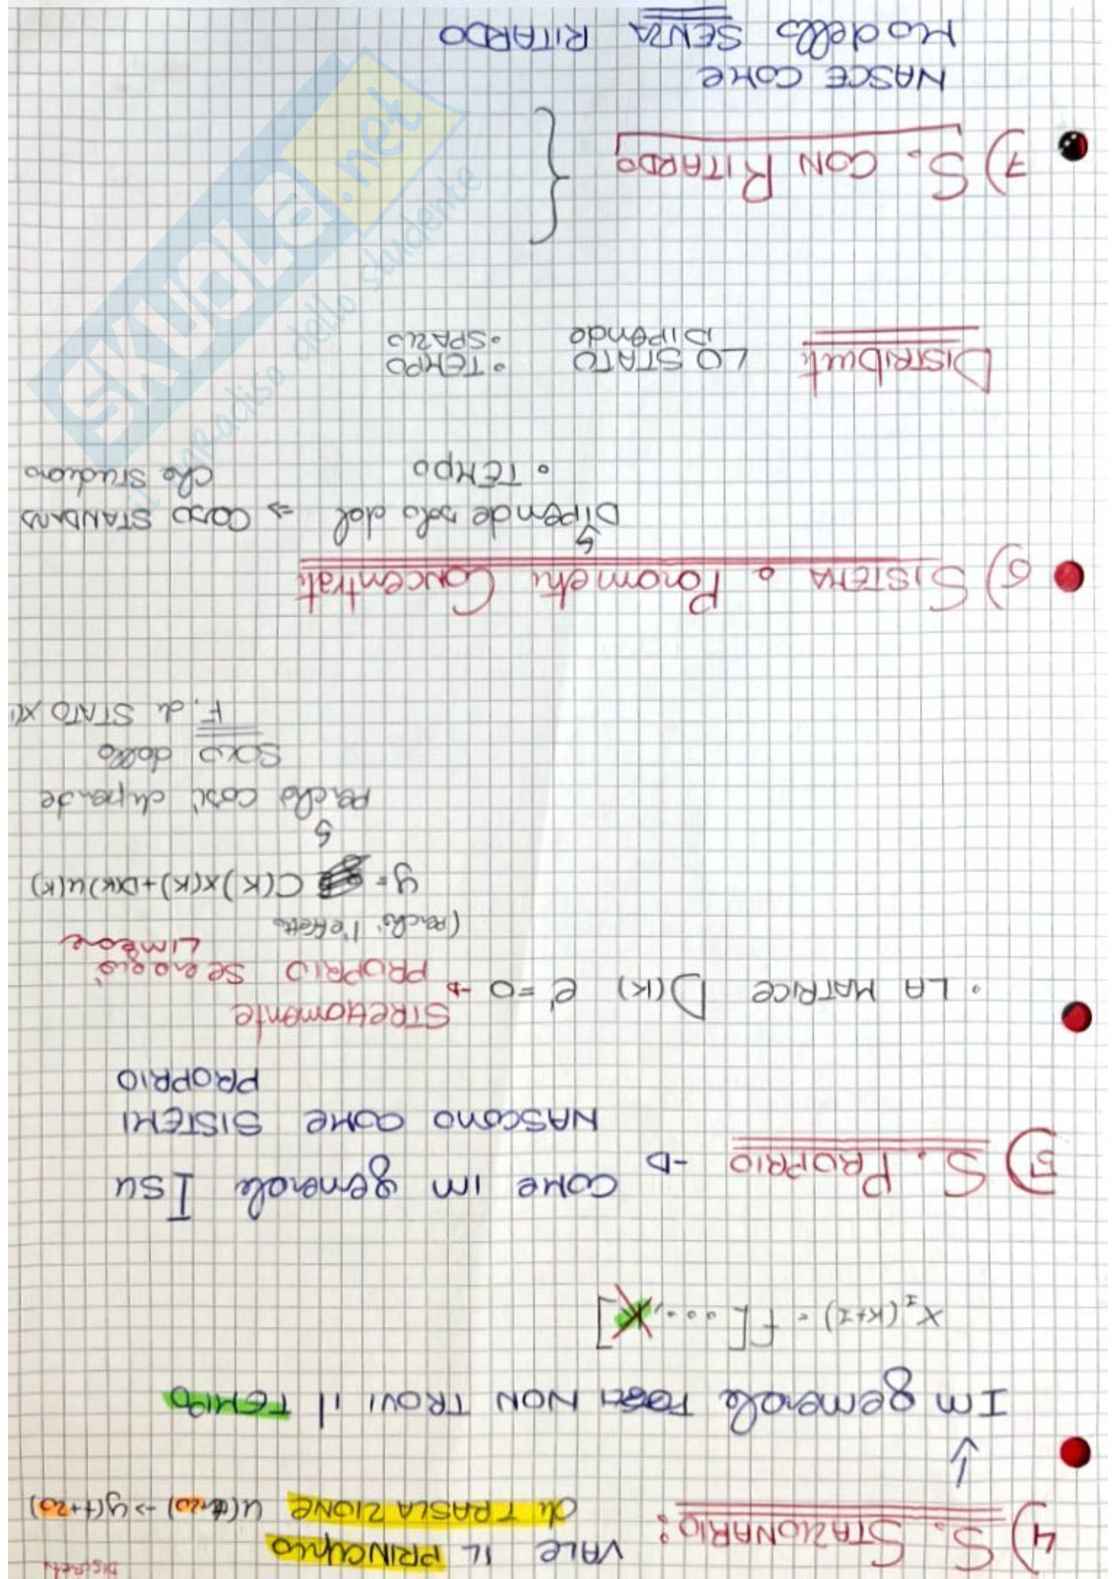 Discreti
4) S. STAZIONARIO: VALE IL PRINCIPIO
di TRASLAZIONE u(t+20) -> y(t+20)
↓
Im generale NON TROVI il TEMPO
x₁(k+1) = f[....,k]
5) S. PROPRIO -▷ COME IM generale I SU
NASCONO COME SISTEMI
PROPRIO
• LA MATRICE D(K) è =0 -▷ STRETTAMENTE
PROPRIO se era già
LIMEARE
(perchè l'effetto
y= C(K)X(K)+D(K)U(K)
perchè così dipende
SOLO dalla
F. di STATO X(
6) SISTEMA a Parametri Concentrati
Dipende solo dal ⇒ CASO STANDARD
• TEMPO che studiamo
DISTRIBUITI LO STATO • TEMPO
DIPENDE • SPAZIO
7) S. CON RITARDO }
NASCE COME
Modello SENZA RITARDO
SKUOLA.net
paradiso dello studente